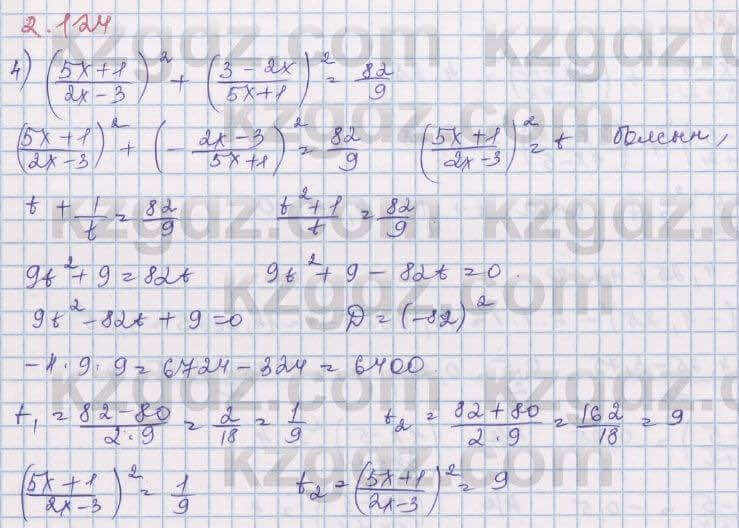 2.124
4) ((5x+1)/(2x-3))² + ((3-2x)/(5x+1))² = 82/9
((5x+1)/(2x-3))² + (-(2x-3)/(5x+1))² = 82/9   ((5x+1)/(2x-3))² = t   болсын,
t + 1/t = 82/9   (t²+1)/t = 82/9.
9t²+9=82t   9t²+9-82t=0.
9t²-82t+9=0   D=(-82)²
-4·9·9=6724-324=6400.
t₁ = (82-80)/(2·9) = 2/18 = 1/9   t₂ = (82+80)/(2·9) = 162/18 = 9
((5x+1)/(2x-3))² = 1/9   t₂ = ((5x+1)/(2x-3))² = 9
kzgdz.com